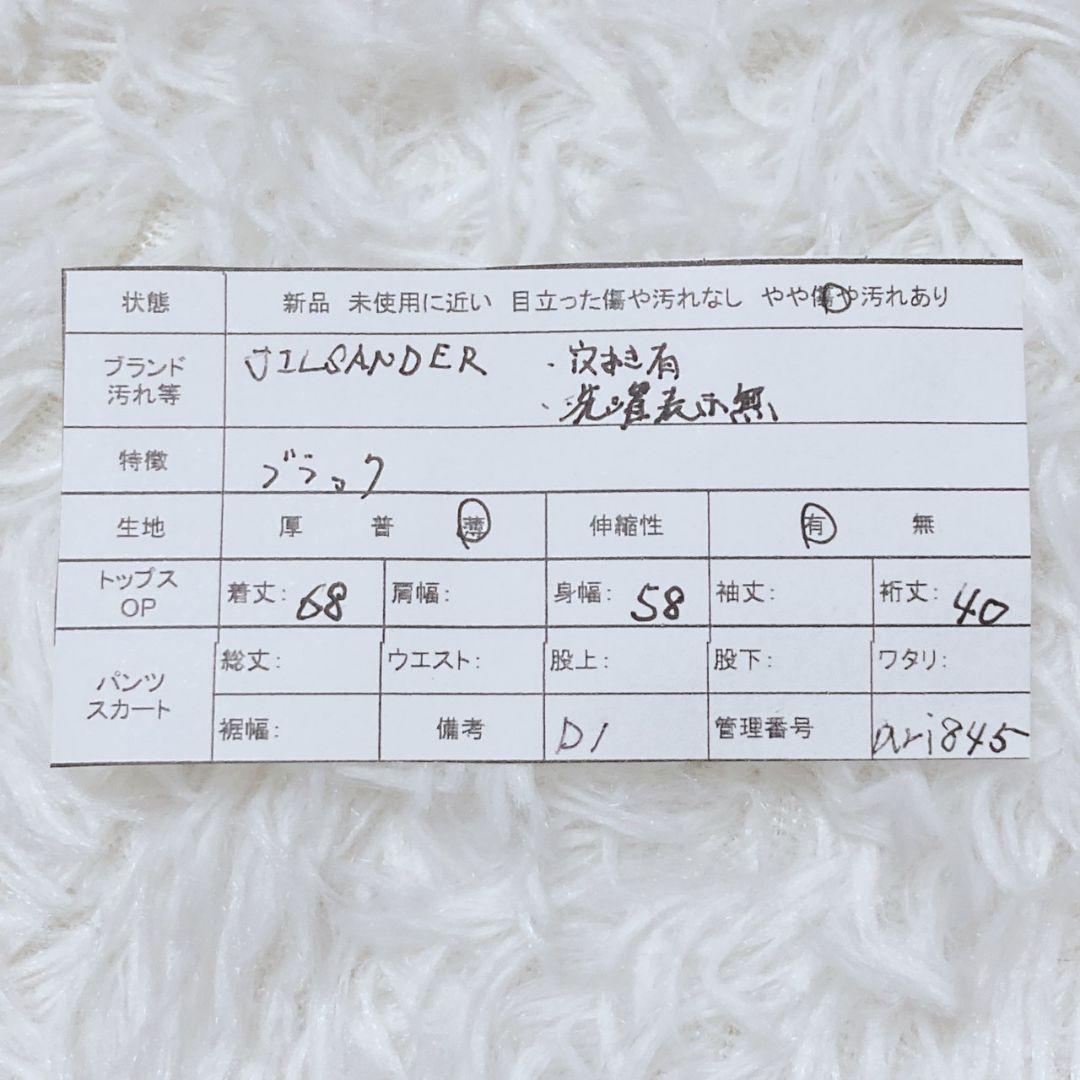 状態 新品 未使用に近い 目立った傷や汚れなし やや傷や汚れあり
ブランド JILSANDER ・穴あき有
汚れ等 ・洗濯表示無
特徴 ブラック
生地 厚 普 薄 伸縮性 有 無
トップス
OP 着丈: 68 肩幅: 身幅: 58 袖丈: 裄丈: 40
パンツ
スカート 総丈: ウエスト: 股上: 股下: ワタリ:
裾幅: 備考 D1 管理番号 ari845